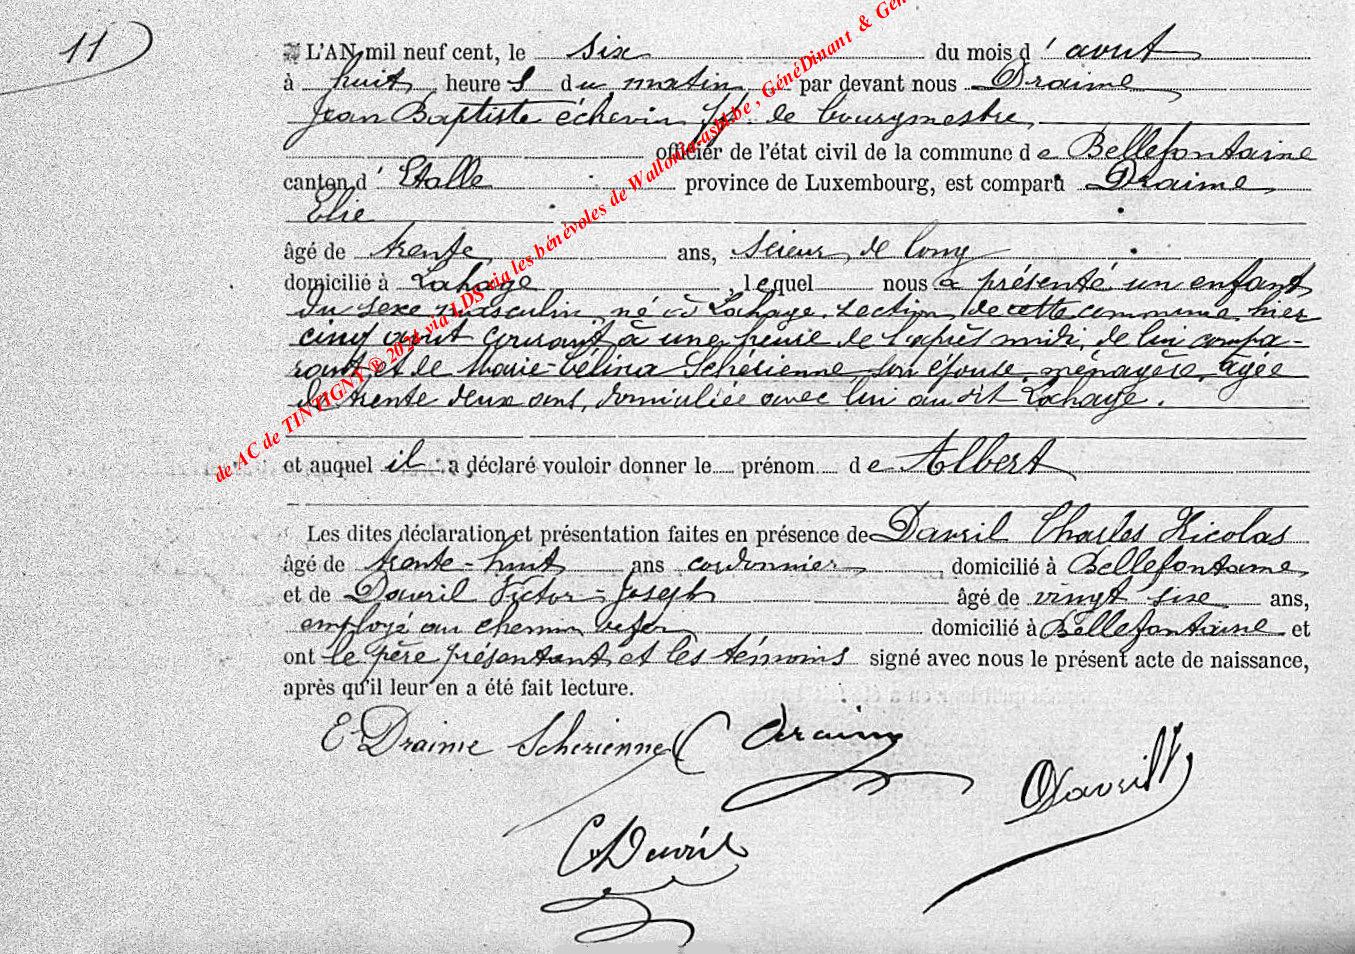 11
L'AN mil neuf cent, le six du mois d'août
à huit heures du matin par devant nous Draime
Jean Baptiste échevin ff. de bourgmestre,
officier de l'état civil de la commune de Bellefontaine
canton d'Etalle province de Luxembourg, est comparu Draime
Elie
âgé de trente ans, scieur de long
domicilié à Lahage, lequel nous a présenté un enfant
du sexe masculin, né à Lahage, section de cette commune, hier
cinq août courant à une heure de l'après midi, de lui compa-
rant, et de Marie-Célina Schérienne, son épouse, ménagère, âgée
de trente deux ans, domiciliée avec lui au dit Lahage.
et auquel il a déclaré vouloir donner le prénom de Albert
Les dites déclaration et présentation faites en présence de Davril Charles Nicolas
âgé de trente-huit ans cordonnier, domicilié à Bellefontaine,
et de Davril Victor-Joseph âgé de vingt six ans,
employé au chemin de fer domicilié à Bellefontaine et
ont le père présentant et les témoins signé avec nous le présent acte de naissance,
après qu'il leur en a été fait lecture.
E Draime Scherienne Draime
Davril V
C Davril
de AC de TINTIGNY ® 2024 via LDS via les bénévoles de Wallonia-asbl.be, GénéDinant & Gén